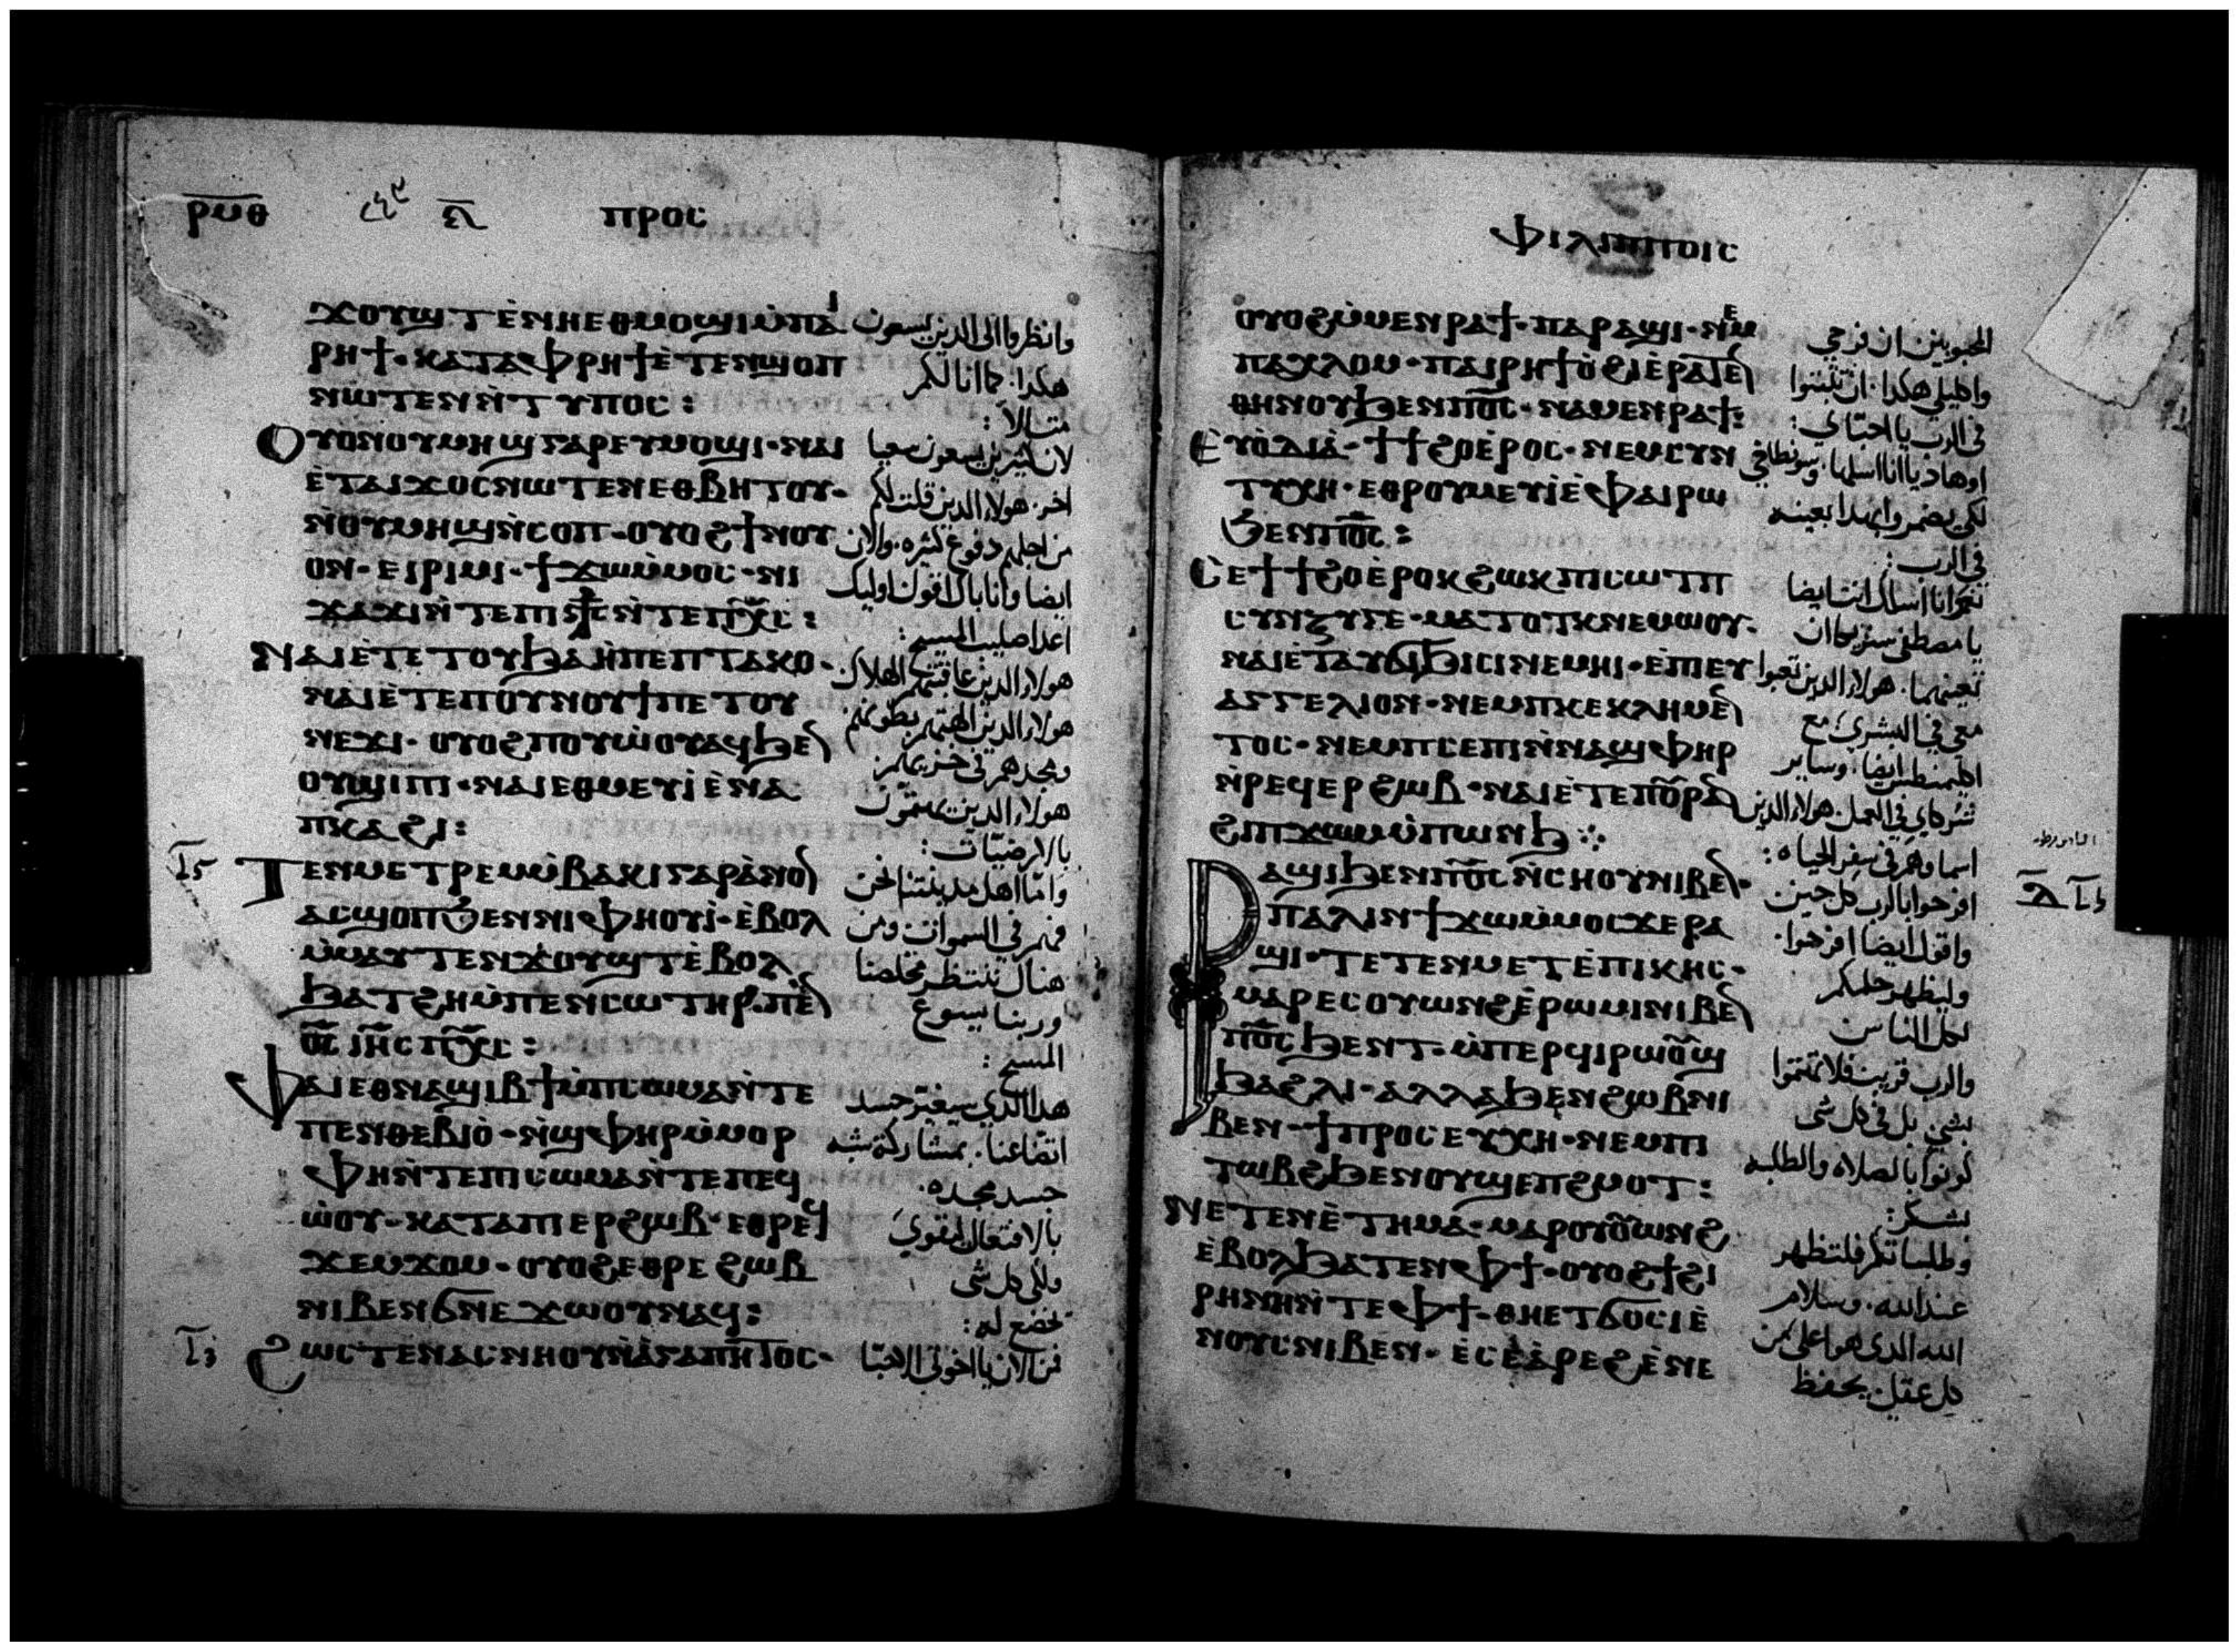 ⲣⲙⲑ ⲇ̅ ⲡⲣⲟⲥ
ϫⲟⲩϣⲧ ⲉ̀ⲛⲏⲉⲑⲙⲟϣⲓ ⲙ̀ⲡⲁⲓ
ⲣⲏϯ· ⲕⲁⲧⲁⲫⲣⲏϯ ⲉ̀ⲧⲉⲛϣⲟⲡ
ⲛⲱⲧⲉⲛ ⲛ̀ⲧⲩⲡⲟⲥ:
ⲟⲩⲟⲛⲟⲩⲙⲏϣ ⲅⲁⲣ ⲉⲩⲙⲟϣⲓ· ⲛⲁⲓ
ⲉ̀ⲧⲁⲓϫⲟⲥ ⲛⲱⲧⲉⲛ ⲉⲑⲃⲏⲧⲟⲩ·
ⲛ̀ⲟⲩⲙⲏϣ ⲛ̀ⲥⲟⲡ· ⲟⲩⲟϩ ϯⲛⲟⲩ
ⲟⲛ· ⲉⲓⲣⲓⲙⲓ· ϯϫⲱⲙ̀ⲙⲟⲥ· ⲛⲓ
ϫⲁϫⲓ ⲛ̀ⲧⲉⲡⲓⳁⲥ ⲛ̀ⲧⲉⲡⲭ̅ⲥ̅:
ⲛⲁⲓ ⲉ̀ⲧⲉ ⲧⲟⲩϧⲁⲏ̀ ⲡⲉ ⲡⲧⲁⲕⲟ·
ⲛⲁⲓ ⲉ̀ⲧⲉ ⲡⲟⲩⲛⲟⲩϯ ⲡⲉ ⲧⲟⲩ
ⲛⲉϫⲓ· ⲟⲩⲟϩ ⲡⲟⲩⲱ̀ⲟⲩ ⲁϥϧⲉⲛ
ⲟⲩϣⲓⲡⲓ· ⲛⲁⲓ ⲉⲑⲙⲉⲩⲓ̀ ⲉ̀ⲛⲁ
ⲡⲕⲁϩⲓ:
ⲧⲉⲛⲙⲉⲧⲣⲉⲙⲙ̀ⲃⲁⲕⲓ ⲅⲁⲣ ⲁ̀ⲛⲟⲛ
ⲁⲥϣⲟⲡ ϧⲉⲛ ⲛⲓⲫⲏⲟⲩⲓ̀· ⲉ̀ⲃⲟⲗ
ⲙ̀ⲙⲁⲩ ⲧⲉⲛϫⲟⲩϣⲧ ⲉ̀ⲃⲟⲗ
ϧⲁⲧϩⲏ ⲙ̀ⲡⲉⲛⲥⲱⲧⲏⲣ· ⲡⲉⲛ
ⲟ̅ⲥ̅ ⲓⲏ̅ⲥ ⲡⲭ̅ⲥ̅:
ⲫⲁⲓ ⲉⲑⲛⲁϣⲓⲃϯ ⲙ̀ⲡⲓⲥⲱⲙⲁ ⲛ̀ⲧⲉ
ⲡⲉⲛⲑⲉⲃⲓⲟ̀· ⲛ̀ϣⲫⲏⲣ ⲙ̀ⲙⲟⲣ
ⲫⲏ ⲛ̀ⲧⲉⲡⲓⲥⲱⲙⲁ ⲛ̀ⲧⲉ ⲡⲉϥ
ⲱ̀ⲟⲩ· ⲕⲁⲧⲁ ⲡⲓⲉⲣϩⲱⲃ· ⲉⲑⲣⲉϥ
ϫⲉⲙϫⲟⲙ· ⲟⲩⲟϩ ⲉⲑⲣⲉ ϩⲱⲃ
ⲛⲓⲃⲉⲛ ϭⲛⲉϫⲱⲟⲩ ⲛⲁϥ:
ϩⲱⲥⲧⲉ ⲛⲁⲥⲛⲏⲟⲩ ⲛ̀ⲁ̀ⲅⲁⲡⲏⲧⲟⲥ·
وانظروا الى الدين يسعون
هكدا. كما انا لكم
متالا:
لان كثيرين يسعون سعيا
اخر. هولاء الدين قلت لكم
من اجلهم دفوع كثيره. والان
ايضا وانا باك اقول اوليك
اعدا صليب المسيح:
هولاء الدين عاقبتهم الهلاك
هولاء الدين الههم بطونهم
ومجدهم في خزيهم
هولاء الدين يهتمون
بالارضيات:
واما اهل مدينتنا نحن
فهم في السموات ومن
هناك ننتظر مخلصنا
وربنا يسوع
المسيح:
هدا الدي سيغير جسد
اتضاعنا. بمشاركة شبه
جسد مجده.
بالافتعال المقوي
ولكي كل شى
تخضع له:
فمن الان يا اخوتي الاحبا
ⲫⲓⲗⲓⲡⲡⲟⲓⲥ
ⲟⲩⲟϩ ⲙ̀ⲙⲉⲛⲣⲁϯ· ⲡⲁⲣⲁϣⲓ· ⲛⲉⲙ
ⲡⲁⲭⲗⲟⲙ· ⲡⲁⲓⲣⲏϯ ⲟ̀ϩⲓ ⲉ̀ⲣⲁⲧⲉⲛ
ⲑⲏⲛⲟⲩ ϧⲉⲛ ⲡⲟ̅ⲥ̅· ⲛⲁⲙⲉⲛⲣⲁϯ:
ⲉⲩⲟ̀ⲇⲓⲁ̀· ϯϯϩⲟ ⲉ̀ⲣⲟⲥ· ⲛⲉⲙ ⲥⲩⲛ
ⲧⲩⲭⲏ· ⲉⲑⲣⲟⲩⲙⲉⲩⲓ̀ ⲉ̀ⲫⲁⲓ ⲣⲱ
ϧⲉⲛ ⲡⲟ̅ⲥ̅:
ⲥⲉ ϯϯϩⲟ ⲉ̀ⲣⲟⲕ ϩⲱⲕ ⲡⲓⲥⲱⲧⲡ
ⲥⲩⲛⲍⲩⲅⲉ· ⲙⲁⲧⲟⲧⲕ ⲛⲉⲙⲱⲟⲩ·
ⲛⲁⲓ ⲉ̀ⲧⲁⲩϭⲓϧⲓⲥⲓ ⲛⲉⲙⲏⲓ· ⲉ̀ⲡⲓⲉⲩ
ⲁⲅⲅⲉⲗⲓⲟⲛ· ⲛⲉⲙ ⲡⲕⲉⲕⲗⲏⲙⲉⲛ
ⲧⲟⲥ· ⲛⲉⲙ ⲡⲥⲉⲡⲓ ⲛ̀ⲛⲁϣⲫⲏⲣ
ⲛ̀ⲣⲉϥⲉⲣϩⲱⲃ· ⲛⲁⲓ ⲉ̀ⲧⲉ ⲡⲟⲩⲣⲁⲛ
ϩⲓ ⲡϫⲱⲙ ⲙ̀ⲡⲱⲛϧ
ⲣⲁϣⲓ ϧⲉⲛ ⲡⲟ̅ⲥ̅ ⲛ̀ⲥⲏⲟⲩ ⲛⲓⲃⲉⲛ·
ⲡⲁⲗⲓⲛ ϯϫⲱⲙ̀ⲙⲟⲥ ϫⲉ ⲣⲁ
ϣⲓ· ⲧⲉⲧⲉⲛⲙⲉⲧⲉ̀ⲡⲓⲕⲏⲥ·
ⲙⲁⲣⲉⲥⲟⲩⲱⲛϩ ⲉ̀ⲣⲱⲙⲓ ⲛⲓⲃⲉⲛ
ⲡⲟ̅ⲥ̅ ϧⲉⲛⲧ· ⲙ̀ⲡⲉⲣϥⲓⲣⲱⲟⲩϣ
ϧⲁ ϩⲗⲓ· ⲁⲗⲗⲁ ϧⲉⲛ ϩⲱⲃ ⲛⲓ
ⲃⲉⲛ· ϯⲡⲣⲟⲥⲉⲩⲭⲏ· ⲛⲉⲙ ⲡⲓ
ⲧⲱⲃϩ ϧⲉⲛ ⲟⲩϣⲉⲡϩⲙⲟⲧ:
ⲛⲉⲧⲉⲛⲉ̀ⲧⲏⲙⲁ· ⲙⲁⲣⲟⲩⲟⲩⲱⲛϩ
ⲉ̀ⲃⲟⲗ ϧⲁⲧⲉⲛ ⲫϯ· ⲟⲩⲟϩ ϯϩⲓ
ⲣⲏⲛⲏ ⲛ̀ⲧⲉ ⲫϯ· ⲑⲏⲉⲧϭⲟⲥⲓ ⲉ̀
ⲛⲟⲩⲥ ⲛⲓⲃⲉⲛ· ⲉⲥⲉ̀ⲁ̀ⲣⲉϩ ⲉ̀ⲛⲉ
المحبوبين ان فرحي
واكليلي هكدا. ان تثبتوا
في الرب يا احباي:
اوهاديا انا اسلها. وسونطاخي
لكي يضمروا بهدا بعينه
في الرب:
نعم انا اسلك انت ايضا
يا مصطفى سنزيكا ان
تعينهما. هولاء الدين تعبوا
معي في البشرى مع
اكليمنطس ايضا. وساير
شركاي في العمل. هولاء الدين
اسماوهم في سفر الحياه:
افرحوا بالرب كل حين
واقول ايضا افرحوا.
وليظهر حلمكم
لكل الناس
والرب قريب فلا تهتموا
بشي بل في كل شى
كونوا بالصلاه والطلبه
بشكر:
وطلباتكم فلتظهر
عند الله. وسلام
الله الدي هو اعلى من
كل عقل. يحفظ